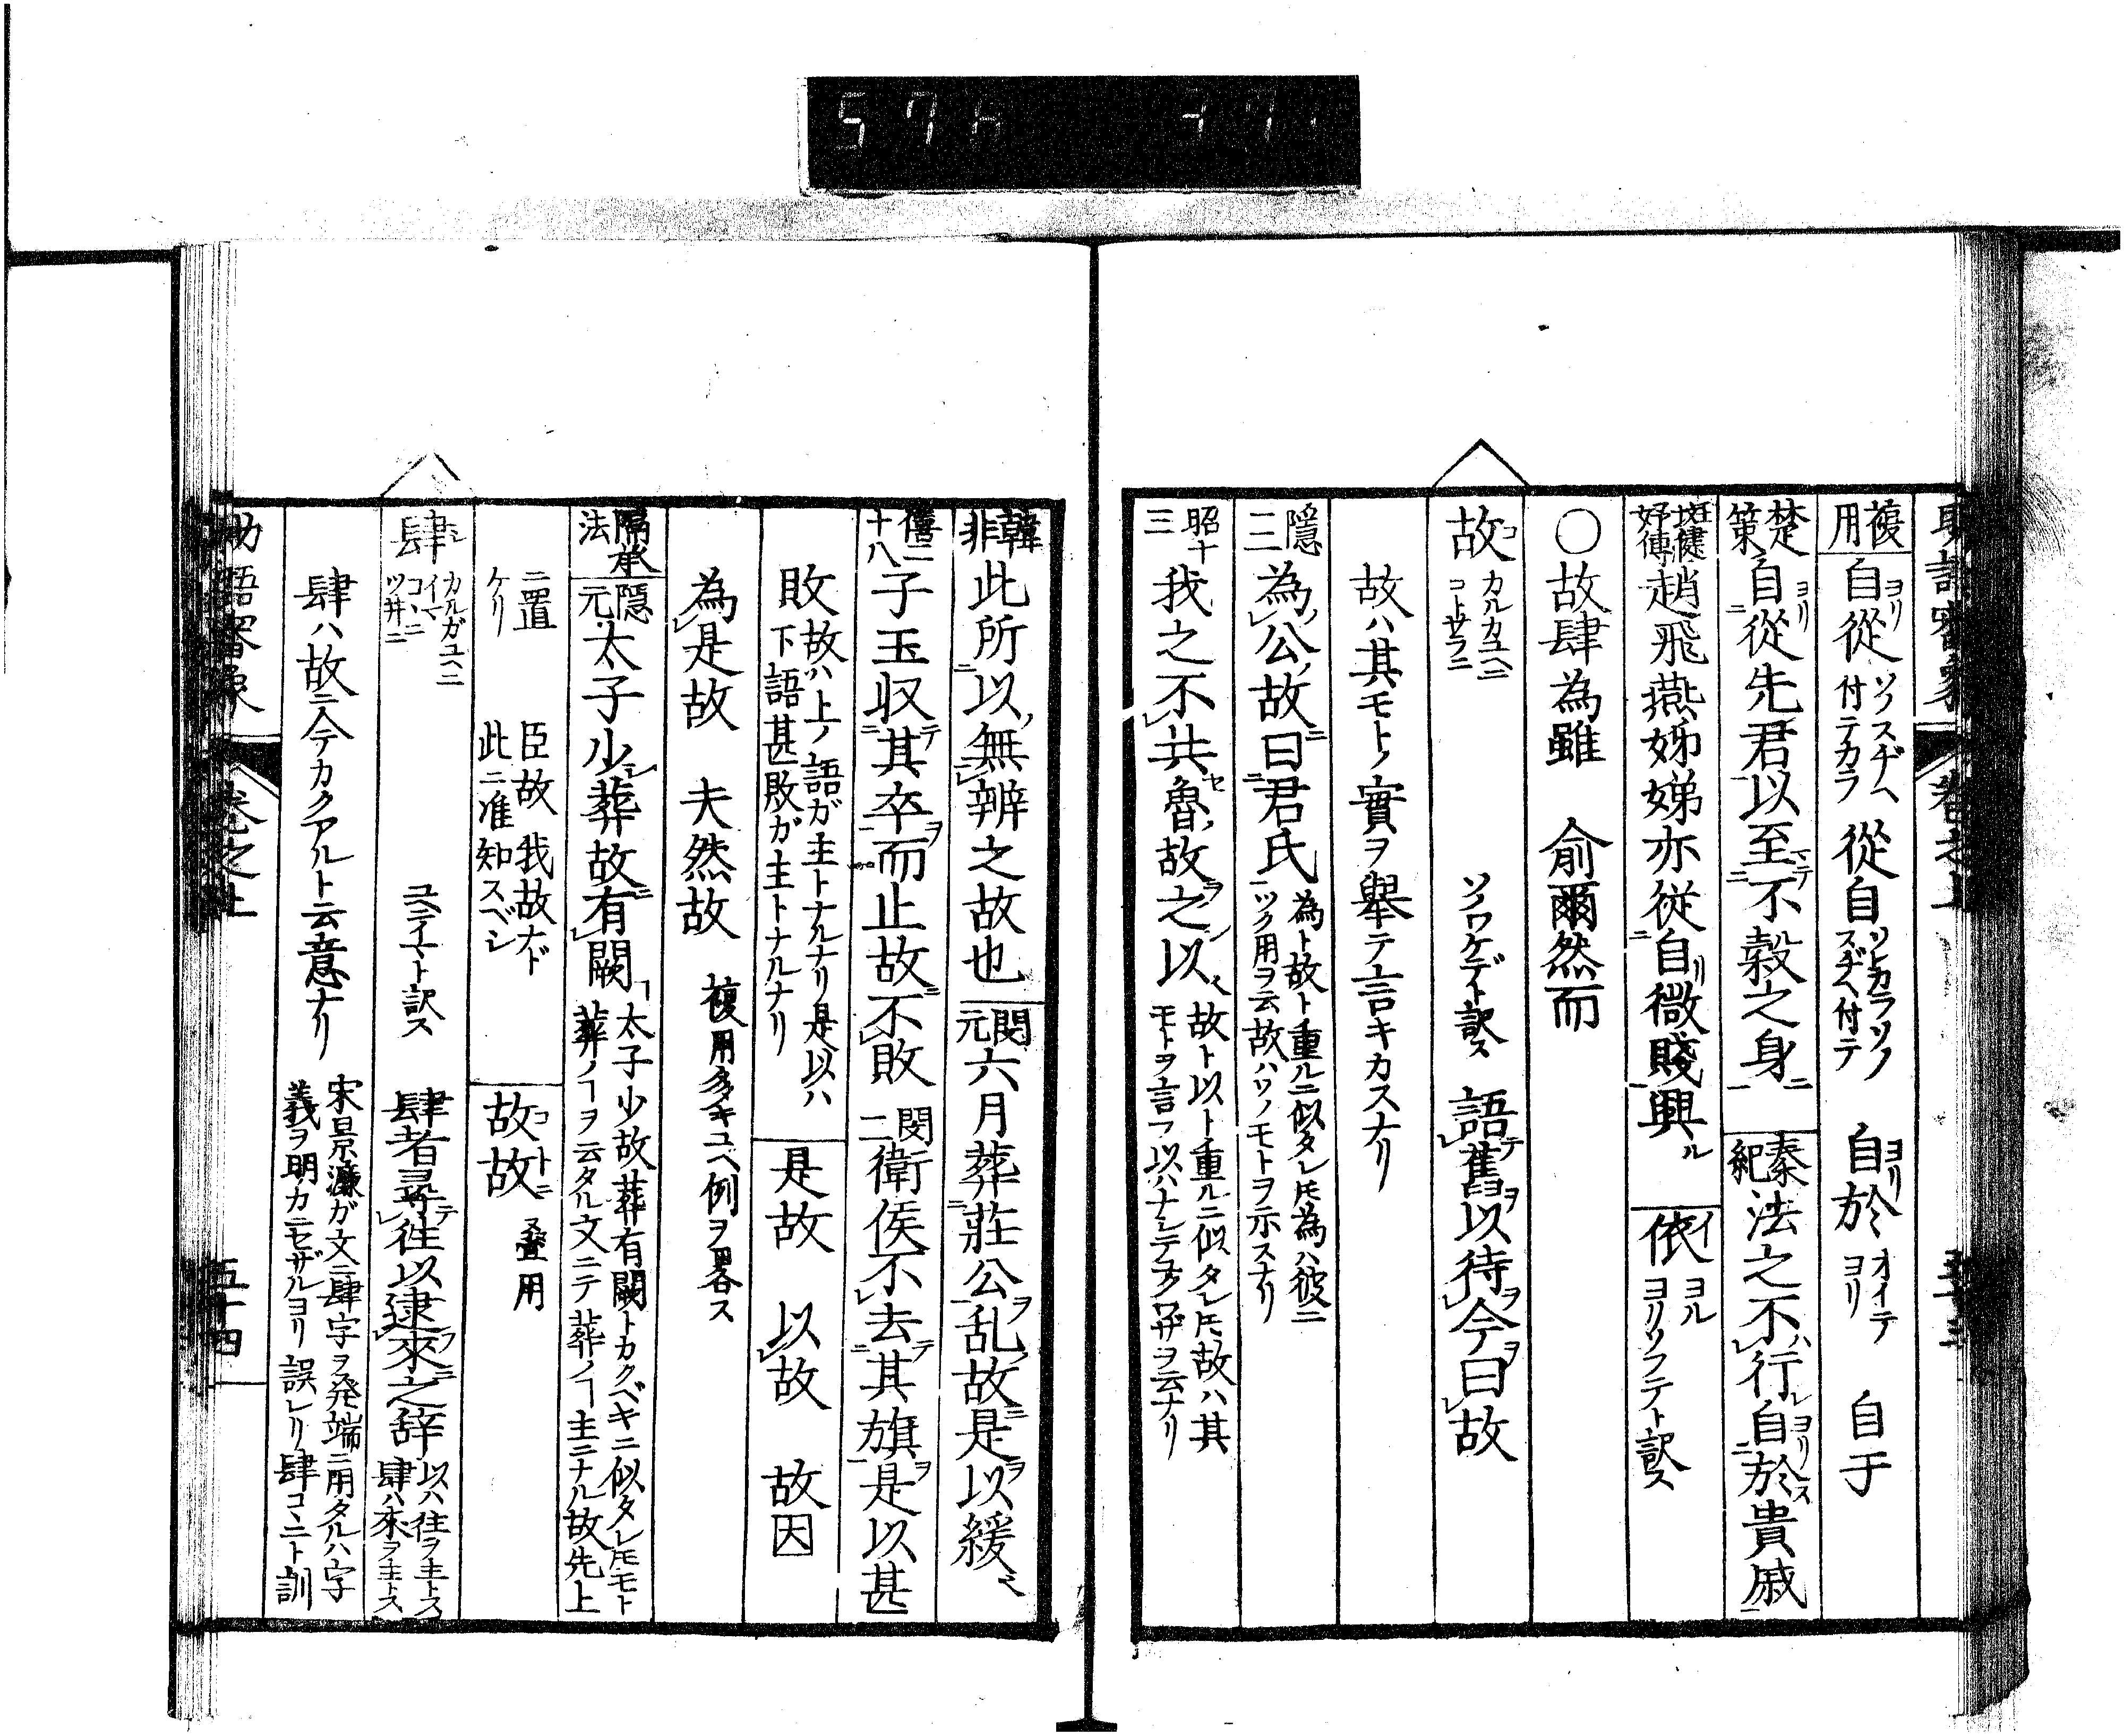 複用 自從 ソノスヂヘ付テカラ 從自 ソレカラソノスヂヘ付テ 自於 オイテヨリ 自于
楚策 自從先君以至不穀之身 秦紀 法之不行自於貴戚
班婕妤傳 趙飛燕姊娣亦從自微賤興 依 ヨル ヨリソフテト訳ス
○故肆為雖 俞爾然而
故 カルカユヘニ コトサラニ ソノワケデト訳ス 語舊以待今曰故
故ハ其モトノ實ヲ舉テ言キカスナリ
隱三 為公故曰君氏 為ト故ト重ルニ似タレ𪜈為ハ彼ニツク用ヲ云故ハソノモトヲ示スナリ
昭十三 我之不共魯故之以 故ト以ト重ルニ似タレ𪜈故ハ其モトヲ言フ以ハナシテヲクワザヲ云ナリ
韓非 此所以無辨之故也 閔元 六月葬莊公乱故是以緩
僖二十八 子玉収其卒而止故不敗 閔二 衛侯不去其旗是以甚
敗 故ハ上ノ語ガ主トナルナリ是以ハ下語甚敗ガ主トナルナリ 是故 以故 故因
為是故 夫然故 複用多キユヘ例ヲ畧ス
隔承法 隱元 太子少葬故有闕 太子少故葬有闕トカクベキニ似タレ𪜈モト葬ノヿヲ云タル文ニテ葬ノヿ主ニナル故先上
ニ置ケリ 臣故我故ナド此ニ准知スベシ 故故 コトニ 疊用
肆 カルガユヘニ イマ コヽニ ツ井ニ ユヘニイマト訳ス 肆者尋往以逮來之辞 以ハ往ヲ主トス肆ハ來ヲ主トス
肆ハ故ニ今テカクアルト云意ナリ 宋景濂ガ文ニ肆字ヲ発端ニ用タルハ字義ヲ明カニセザルヨリ誤レリ肆コヽニト訓
助語審象 卷之上 五十四